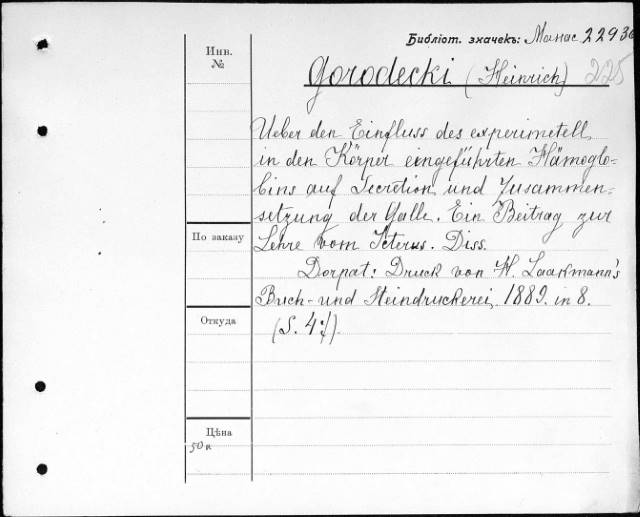 Библіот. значекъ: Манас 22936
Инв.
№
Gorodecki (Heinrich) 225
Ueber den Einfluss des experimetell
in den Körper eingeführten Hämoglo=
bins auf Secretion und Zusammen=
setzung der Galle. Ein Beitrag zur
Lehre vom Icterus. Diss.
По заказу
Dorpat: Druck von H. Laakmann's
Buch- und Steindruckerei. 1889. in 8.
Откуда
(S. 4:/).
Цѣна
50 к